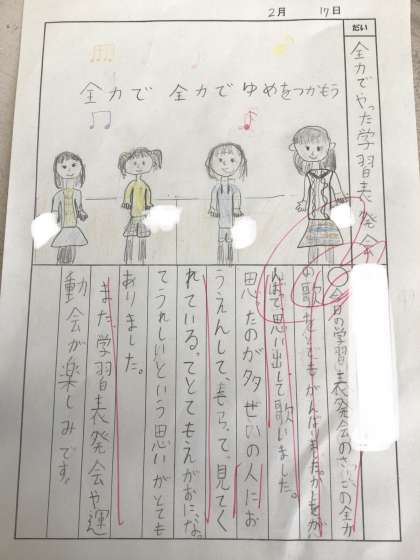 2月 17日
だい
全力でやった学習表発会
全力で 全力で ゆめをつかもう
今日の学習表発会のさいごの全力
の歌をとてもがんばりました。かしをが
んばって、思い出して歌いました。
思ったのが多ぜいの人にお
うえんして、もらって、見てく
れている。てとてもえがおにな。
てうれしいという思いがとても
ありました。
また学習表発会や運
動会が楽しみです。